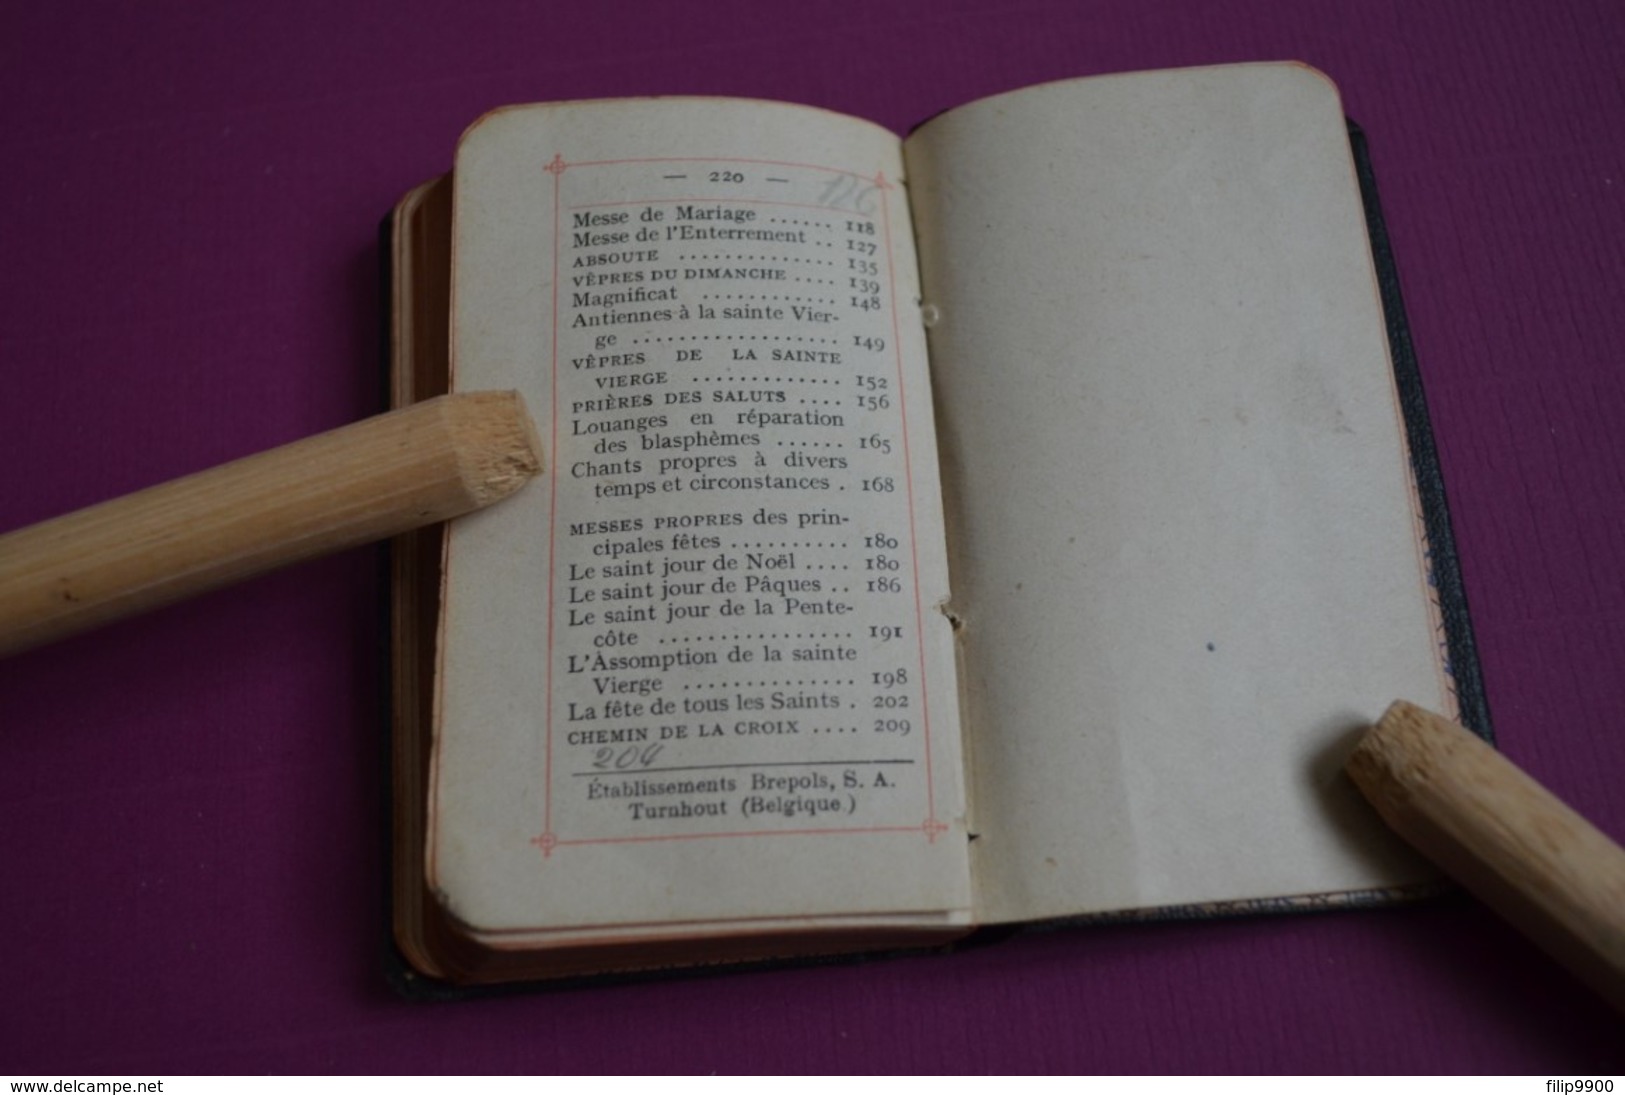 — 220 —
126
Messe de Mariage ...... 118
Messe de l'Enterrement .. 127
ABSOUTE .............. 135
VÊPRES DU DIMANCHE .... 139
Magnificat ............ 148
Antiennes à la sainte Vier-
ge .................. 149
VÊPRES DE LA SAINTE
VIERGE ............. 152
PRIÈRES DES SALUTS .... 156
Louanges en réparation
des blasphèmes ...... 165
Chants propres à divers
temps et circonstances . 168
MESSES PROPRES des prin-
cipales fêtes .......... 180
Le saint jour de Noël .... 180
Le saint jour de Pâques .. 186
Le saint jour de la Pente-
côte ................ 191
L'Assomption de la sainte
Vierge .............. 198
La fête de tous les Saints . 202
CHEMIN DE LA CROIX .... 209
204
Établissements Brepols, S. A.
Turnhout (Belgique)
www.delcampe.net
filip9900